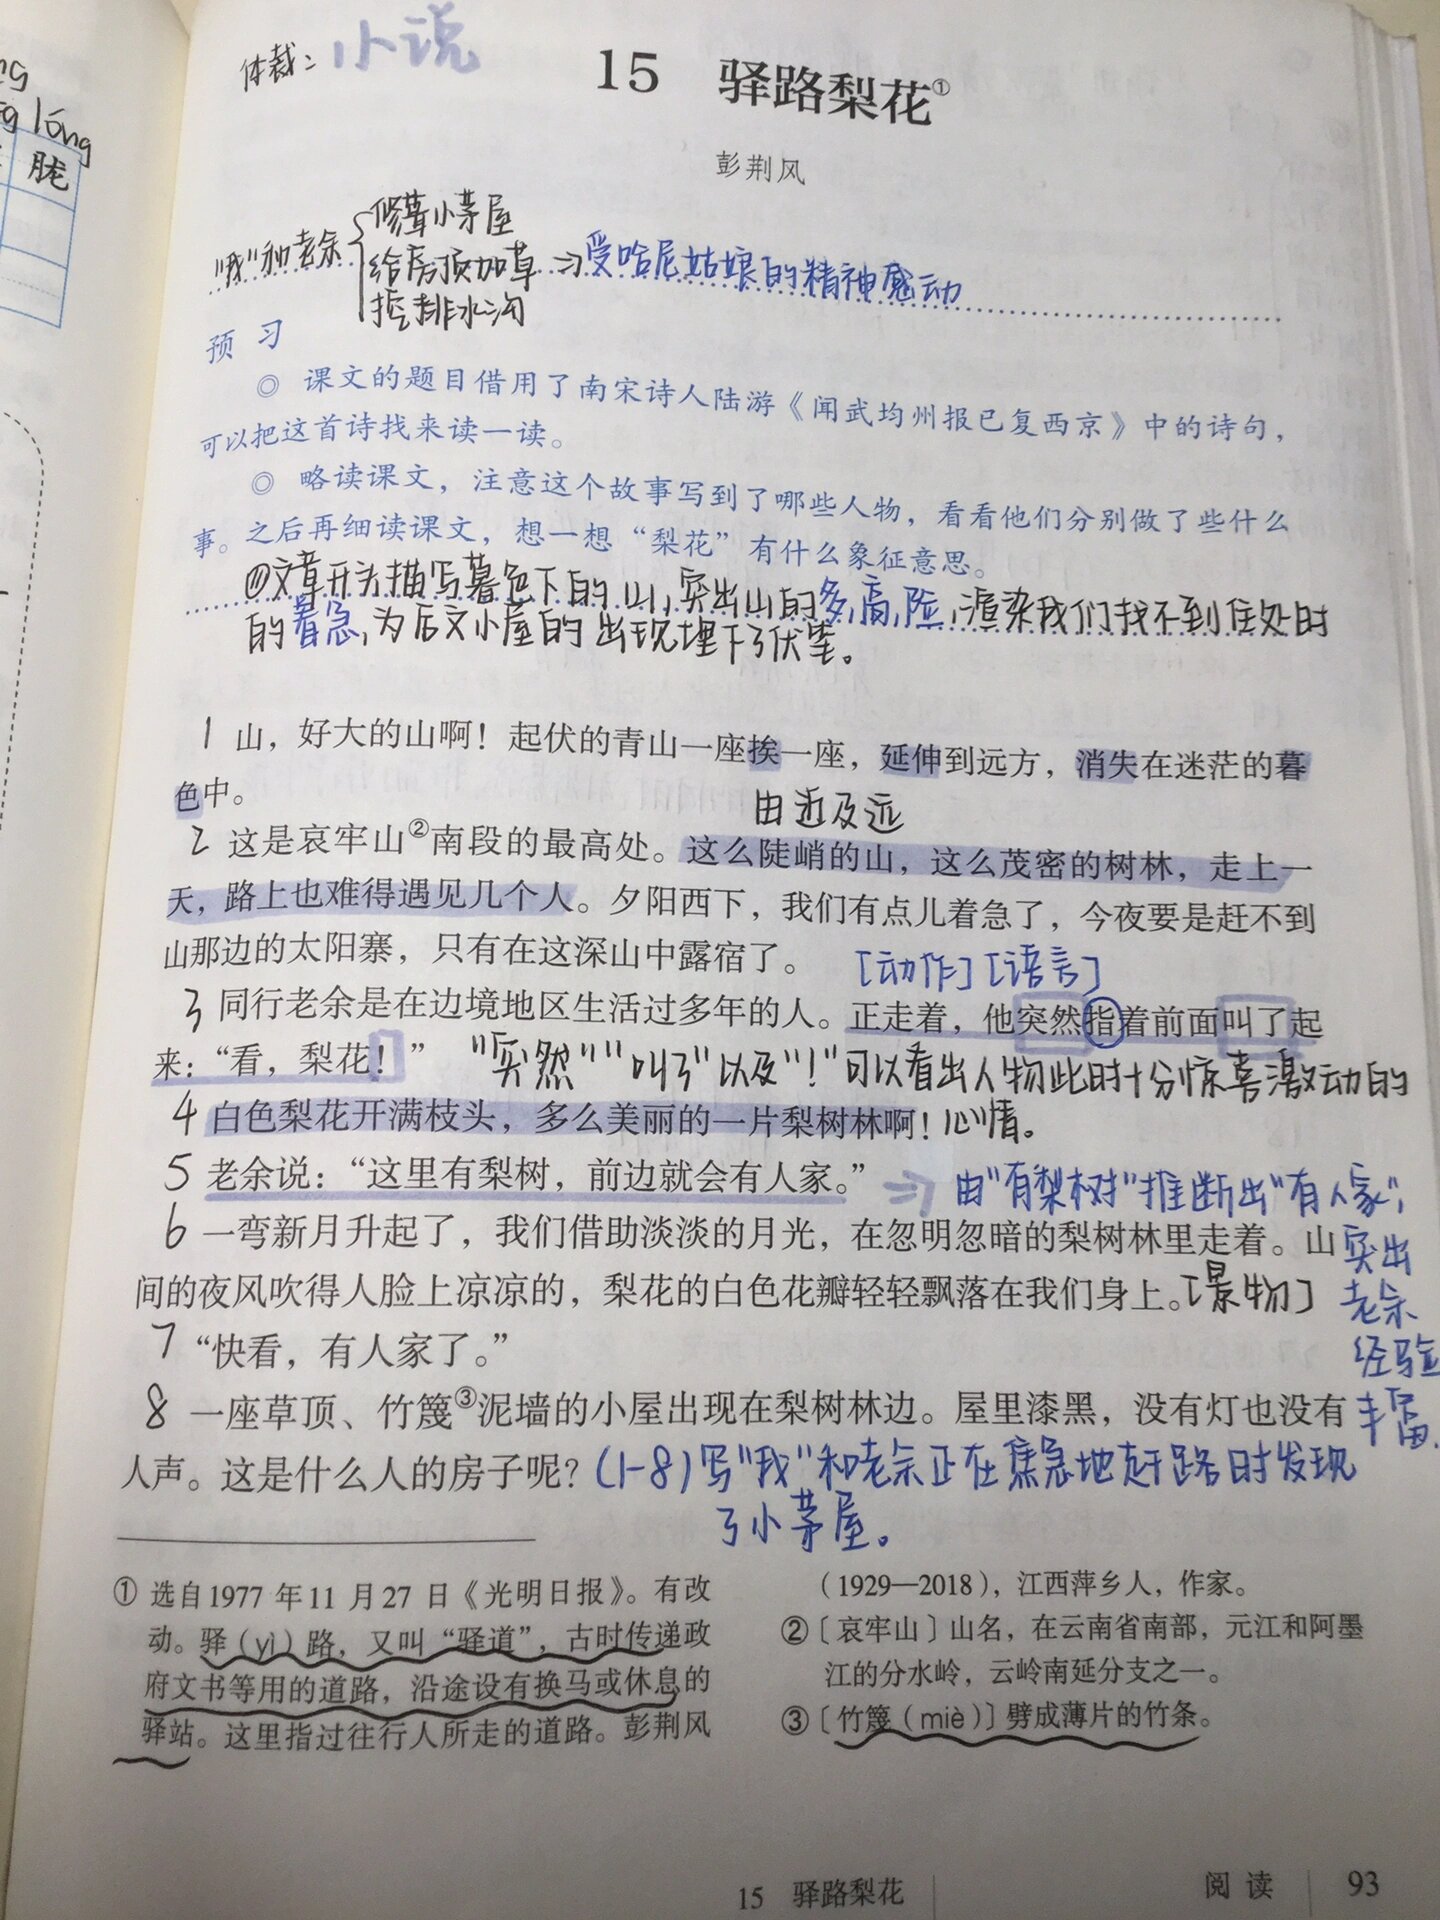 体裁：小说
15 驿路梨花①
彭荆风
胧
lóng
修葺小茅屋
“我”和老余 给房顶加草 ⇒受哈尼姑娘的精神感动
挖排水沟
预习
◎ 课文的题目借用了南宋诗人陆游《闻武均州报已复西京》中的诗句，
可以把这首诗找来读一读。
◎ 略读课文，注意这个故事写到了哪些人物，看看他们分别做了些什么
事。之后再细读课文，想一想“梨花”有什么象征意思。
四文章开头描写暮色下的山，突出山的多，高，险，渲染我们找不到住处时
的着急，为后文小屋的出现埋下了伏笔。
1 山，好大的山啊！起伏的青山一座挨一座，延伸到远方，消失在迷茫的暮
色中。
由近及远
2 这是哀牢山②南段的最高处。这么陡峭的山，这么茂密的树林，走上一
天，路上也难得遇见几个人。夕阳西下，我们有点儿着急了，今夜要是赶不到
山那边的太阳寨，只有在这深山中露宿了。
[动作][语言]
3 同行老余是在边境地区生活过多年的人。正走着，他突然指着前面叫了起
来：“看，梨花！”
“突然”“叫了”以及“！”可以看出人物此时十分惊喜激动的
心情。
4 白色梨花开满枝头，多么美丽的一片梨树林啊！
5 老余说：“这里有梨树，前边就会有人家。”
⇒由“有梨树”推断出“有人家”，
突出
老余
经验
丰富.
6 一弯新月升起了，我们借助淡淡的月光，在忽明忽暗的梨树林里走着。山
间的夜风吹得人脸上凉凉的，梨花的白色花瓣轻轻飘落在我们身上。[景物]
7 “快看，有人家了。”
8 一座草顶、竹篾③泥墙的小屋出现在梨树林边。屋里漆黑，没有灯也没有
人声。这是什么人的房子呢？(1-8)写“我”和老余正在焦急地赶路时发现
了小茅屋。
① 选自1977年11月27日《光明日报》。有改
动。驿（yì）路，又叫“驿道”，古时传递政
府文书等用的道路，沿途设有换马或休息的
驿站。这里指过往行人所走的道路。彭荆风
（1929—2018），江西萍乡人，作家。
② 〔哀牢山〕山名，在云南省南部，元江和阿墨
江的分水岭，云岭南延分支之一。
③ 〔竹篾（miè）〕劈成薄片的竹条。
15 驿路梨花
阅读 93